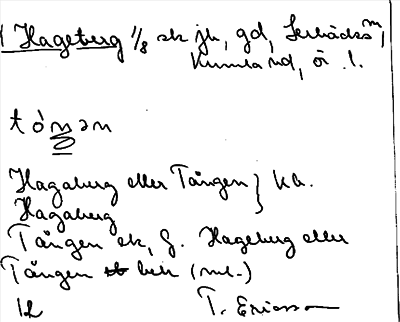 Hageberg 1/8 sk jb, gd, Lerbäcks m,
Kumla hd, ör. l.
tò̀ŋən
Hagaberg eller Tången } ka.
Hagaberg
Tången ek, g. Hageberg eller
Tången bek (ml.)
12 T. Ericsson